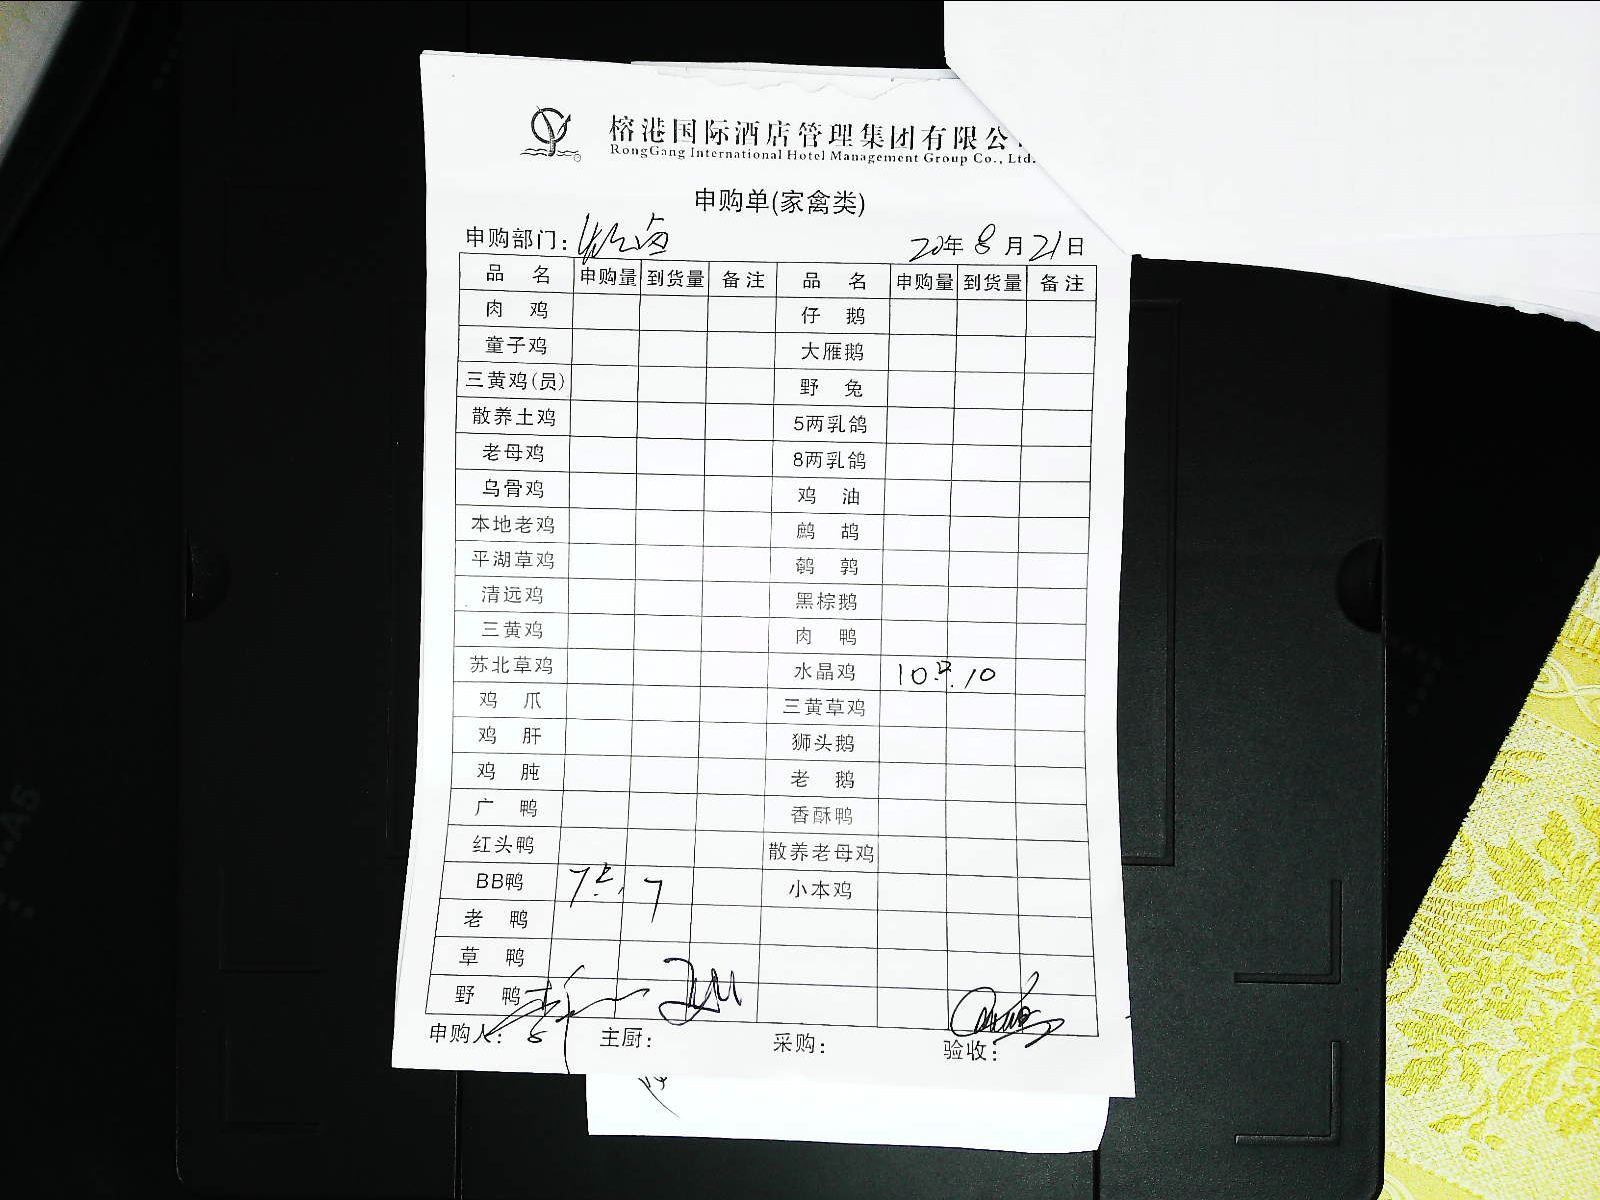 榕港国际酒店管理集团有限公
RongGang International Hotel Management Group Co., Ltd.
申购单(家禽类)
申购部门:
20年 8月 21日
品 名 申购量 到货量 备注 品 名 申购量 到货量 备注
肉 鸡 仔 鹅
童子鸡 大雁鹅
三黄鸡(员) 野 兔
散养土鸡 5两乳鸽
老母鸡 8两乳鸽
乌骨鸡 鸡 油
本地老鸡 鹧 鸪
平湖草鸡 鹌 鹑
清远鸡 黑棕鹅
三黄鸡 肉 鸭
苏北草鸡 水晶鸡 10 10
鸡 爪 三黄草鸡
鸡 肝 狮头鹅
鸡 肫 老 鹅
广 鸭 香酥鸭
红头鸭 散养老母鸡
BB鸭 7 7 小本鸡
老 鸭
草 鸭
野 鸭
申购人: 主厨: 采购: 验收: